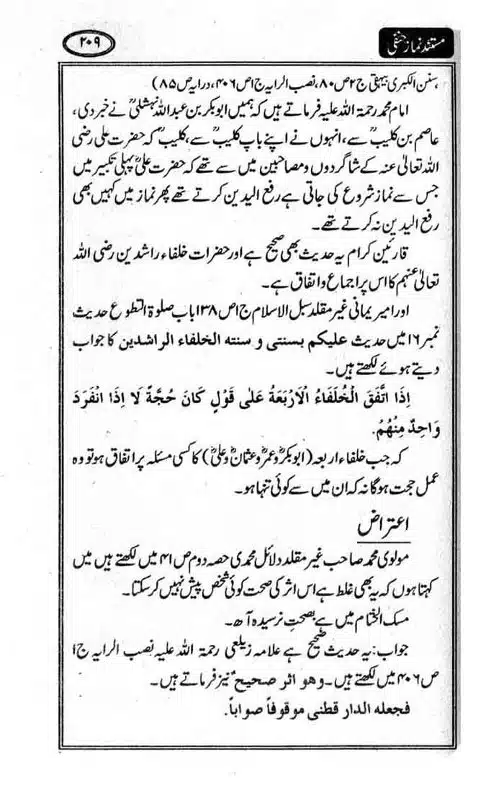 مستند نماز حنفی
۲۰۹
سنن الکبریٰ بیہقی ج۲ص۸۰، نصب الرایہ ج۱ص۴۰۶، درایہ ص۸۵)
امام محمد رحمۃ اللہ علیہ فرماتے ہیں کہ ہمیں ابوبکر بن عبداللہ نہشلیؒ نے خبر دی،
عاصم بن کلیبؒ سے، انہوں نے اپنے باپ کلیبؒ سے، کلیبؒ کہ حضرت علی رضی
اللہ تعالیٰ عنہ کے شاگردوں و مصاحبین میں سے تھے کہ حضرت علیؓ پہلی تکبیر میں
جس سے نماز شروع کی جاتی ہے رفع الیدین کرتے تھے پھر نماز میں کہیں بھی
رفع الیدین نہ کرتے تھے۔
قارئین کرام یہ حدیث بھی صحیح ہے اور حضرات خلفاء راشدین رضی اللہ
تعالیٰ عنہم کا اس پر اجماع و اتفاق ہے۔
اور امیر یمانی غیر مقلد سبل الاسلام ج۱ص۱۳۸ باب صلوۃ التطوع حدیث
نمبر۱۶ میں حدیث علیکم بسنتی و سنته الخلفاء الراشدین کا جواب
دیتے ہوئے لکھتے ہیں۔
اِذَا اتَّفَقَ الْخُلَفَاءُ الْاَرْبَعَةُ عَلٰی قَوْلٍ کَانَ حُجَّةً لَا اِذَا انْفَرَدَ
وَاحِدٌ مِنْهُمْ.
کہ جب خلفاء اربعہ (ابوبکرؓ و عمرؓ و عثمانؓ و علیؓ) کا کسی مسئلہ پر اتفاق ہو تو وہ
عمل حجت ہوگا نہ کہ ان میں سے کوئی تنہا ہو۔
اعتراض
مولوی محمد صاحب غیر مقلد دلائل محمدی حصہ دوم ص۴۱ میں لکھتے ہیں میں
کہتا ہوں کہ یہ بھی غلط ہے اس اثر کی صحت کوئی شخص پیش نہیں کر سکتا۔
مسک الختام میں ہے بصحت نرسیدہ آھ۔
جواب: یہ حدیث صحیح ہے علامہ زیلعی رحمۃ اللہ علیہ نصب الرایہ ج۱
ص۴۰۶ میں لکھتے ہیں۔ وھو اثر صحیح نیز فرماتے ہیں۔
فجعله الدار قطنی موقوفاً صواباً.